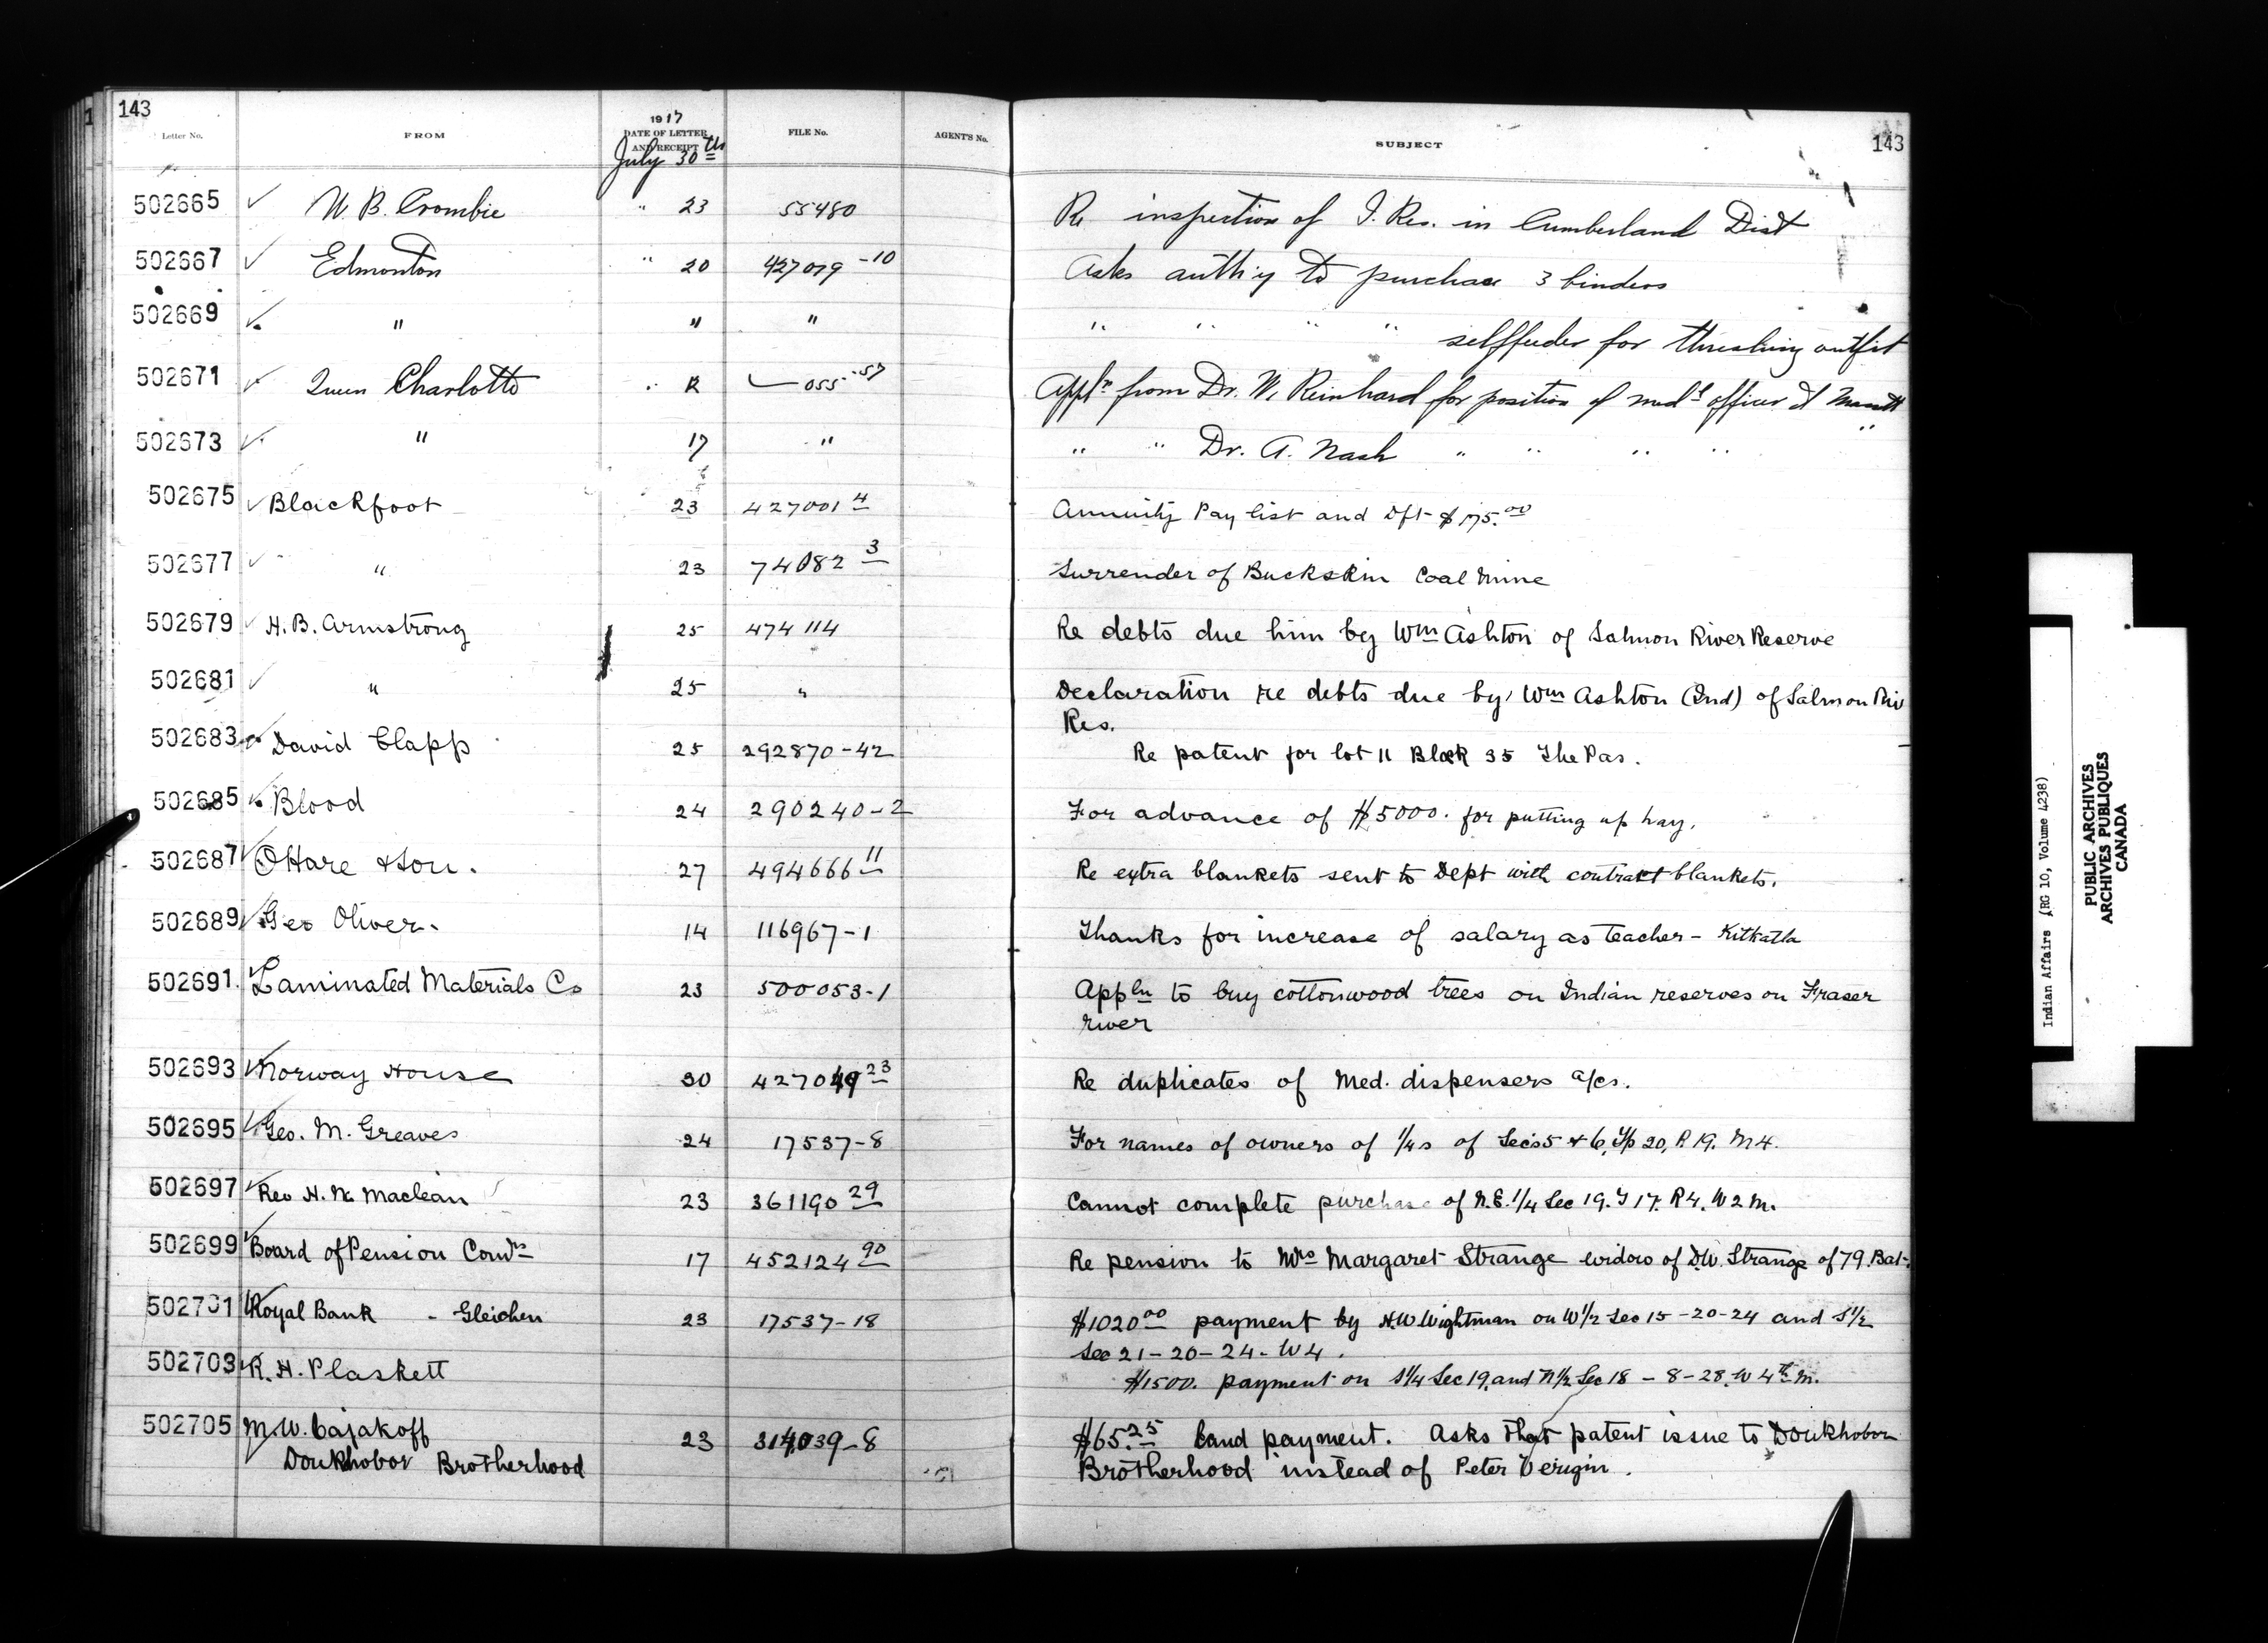 143
143
Letter No. FROM 1917 DATE OF LETTER AND RECEIPT FILE No. AGENT'S No. SUBJECT
July 30th
502665 W. B. Crombie " 23 55480 Re inspection of I. Res. in Cumberland Dist
502667 Edmonton " 20 427079-10 Asks auth'y to purchase 3 binders
502669 " " " " " " " selffeeder for threshing outfit
502671 Queen Charlotte " 055-57 Appln from Dr. W. Reinhard for position of medl officer at
502673 " 17 " " " Dr. A. Nash " " " " "
502675 Blackfoot 23 427001 4 Annuity Pay list and Dft $175.00
502677 " 23 74082 3 Surrender of Buckskin Coal Mine
502679 H. B. Armstrong 25 474114 Re debts due him by Wm Ashton of Salmon River Reserve
502681 " 25 " Declaration re debts due by Wm Ashton (Ind) of Salmon Riv
Res.
502683 David Clapp 25 292870-42 Re patent for lot 11 Block 35 The Pas.
502685 Blood 24 290240-2 For advance of $5000. for putting up hay.
502687 OHare & Son. 27 494666 11 Re extra blankets sent to Dept with contract blankets.
502689 Geo Oliver. 14 116967-1 Thanks for increase of salary as teacher - Kitkatla
502691 Laminated Materials Co 23 500053-1 Appln to buy cottonwood trees on Indian reserves on Fraser
river
502693 Norway House 30 427049 23 Re duplicates of Med. dispensers a/cs.
502695 Geo. M. Greaves 24 17537-8 For names of owners of 1/4s of Secs 5 & 6, Tp 20, R 19. M 4.
502697 Rev H. N. Maclean 23 361190 29 Cannot complete purchase of N.E. 1/4 Sec 19. T 17. R 4. W 2 M.
502699 Board of Pension Comrs 17 452124 90 Re pension to Mrs Margaret Strange widow of D.W. Strange of 79. Bat.
502701 Royal Bank - Gleichen 23 17537-18 $1020.00 payment by H.W Wightman on W 1/2 Sec 15-20-24 and S 1/2
Sec 21-20-24-W4.
502703 R. H. Plaskett $1500. payment on S 1/4 Sec 19. and N 1/2 Sec 18-8-28. W 4th M.
502705 M. W. Cazakoff 23 314039-8 $65.25 land payment. Asks that patent issue to Doukhobor
Doukhobor Brotherhood Brotherhood instead of Peter Verigin.
Indian Affairs (RG 10, Volume 4238)
PUBLIC ARCHIVES
ARCHIVES PUBLIQUES
CANADA